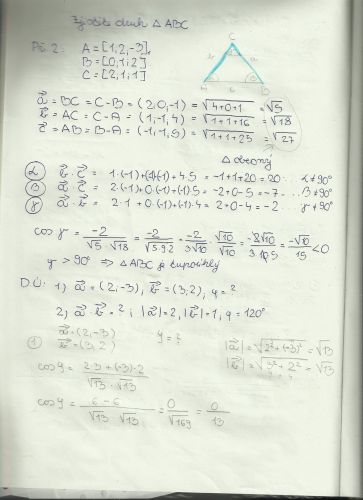 Zjistit druh △ ABC
Př 2: A = [1, 2, -3],
B = [0, 1; 2]
C = [2, 1; 1]
C
b a
A c B
a⃗ = BC = C-B = (2; 0, -1) = √4+0+1 = √5
b⃗ = AC = C-A = (1; -1, 4) = √1+1+16 = √18
c⃗ = AB = B-A = (-1; -1, 5) = √1+1+25 = √27
△ obecný
α b⃗ · c⃗ = 1·(-1)+(-1)·(-1)+4·5 = -1+1+20 = 20 α ≠ 90°
β a⃗ · c⃗ = 2·(-1)+0·(-1)+(-1)·5 = -2+0-5 = -7 β ≠ 90°
γ a⃗ · b⃗ = 2·1+0·(-1)+(-1)·4 = 2+0-4 = -2 γ ≠ 90°
cos γ = -2/√5·√18 = -2/√5·9·2 = -2/3√10 · √10/√10 = -2√10/3·10 = -√10/15 < 0
γ > 90° ⇒ △ ABC je tupoúhlý
DÚ: 1) a⃗ = (2, -3); b⃗ = (3; 2), φ = ?
2) a⃗ · b⃗ = ?; |a⃗| = 2, |b⃗| = 1, φ = 120°
1 a⃗ = (2; -3) φ = ? |a⃗| = √2²+(-3)² = √13
b⃗ = (3; 2) |b⃗| = √3²+2² = √13
cos φ = 2·3+(-3)·2/√13·√13
cos φ = 6-6/√13 √13 = 0/√169 = 0/13